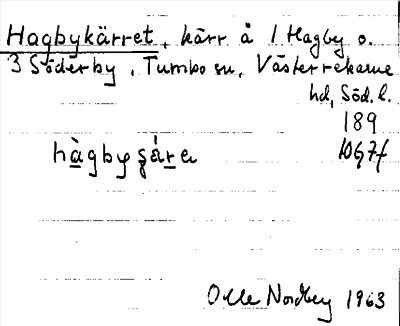 Hagbykärret, kärr å 1 Hagby o.
3 Söderby, Tumbo sn, Västerrekarne
hd, Söd. l.
189
10G7f
hàgbyʂárɐ
Olle Nordberg 1963